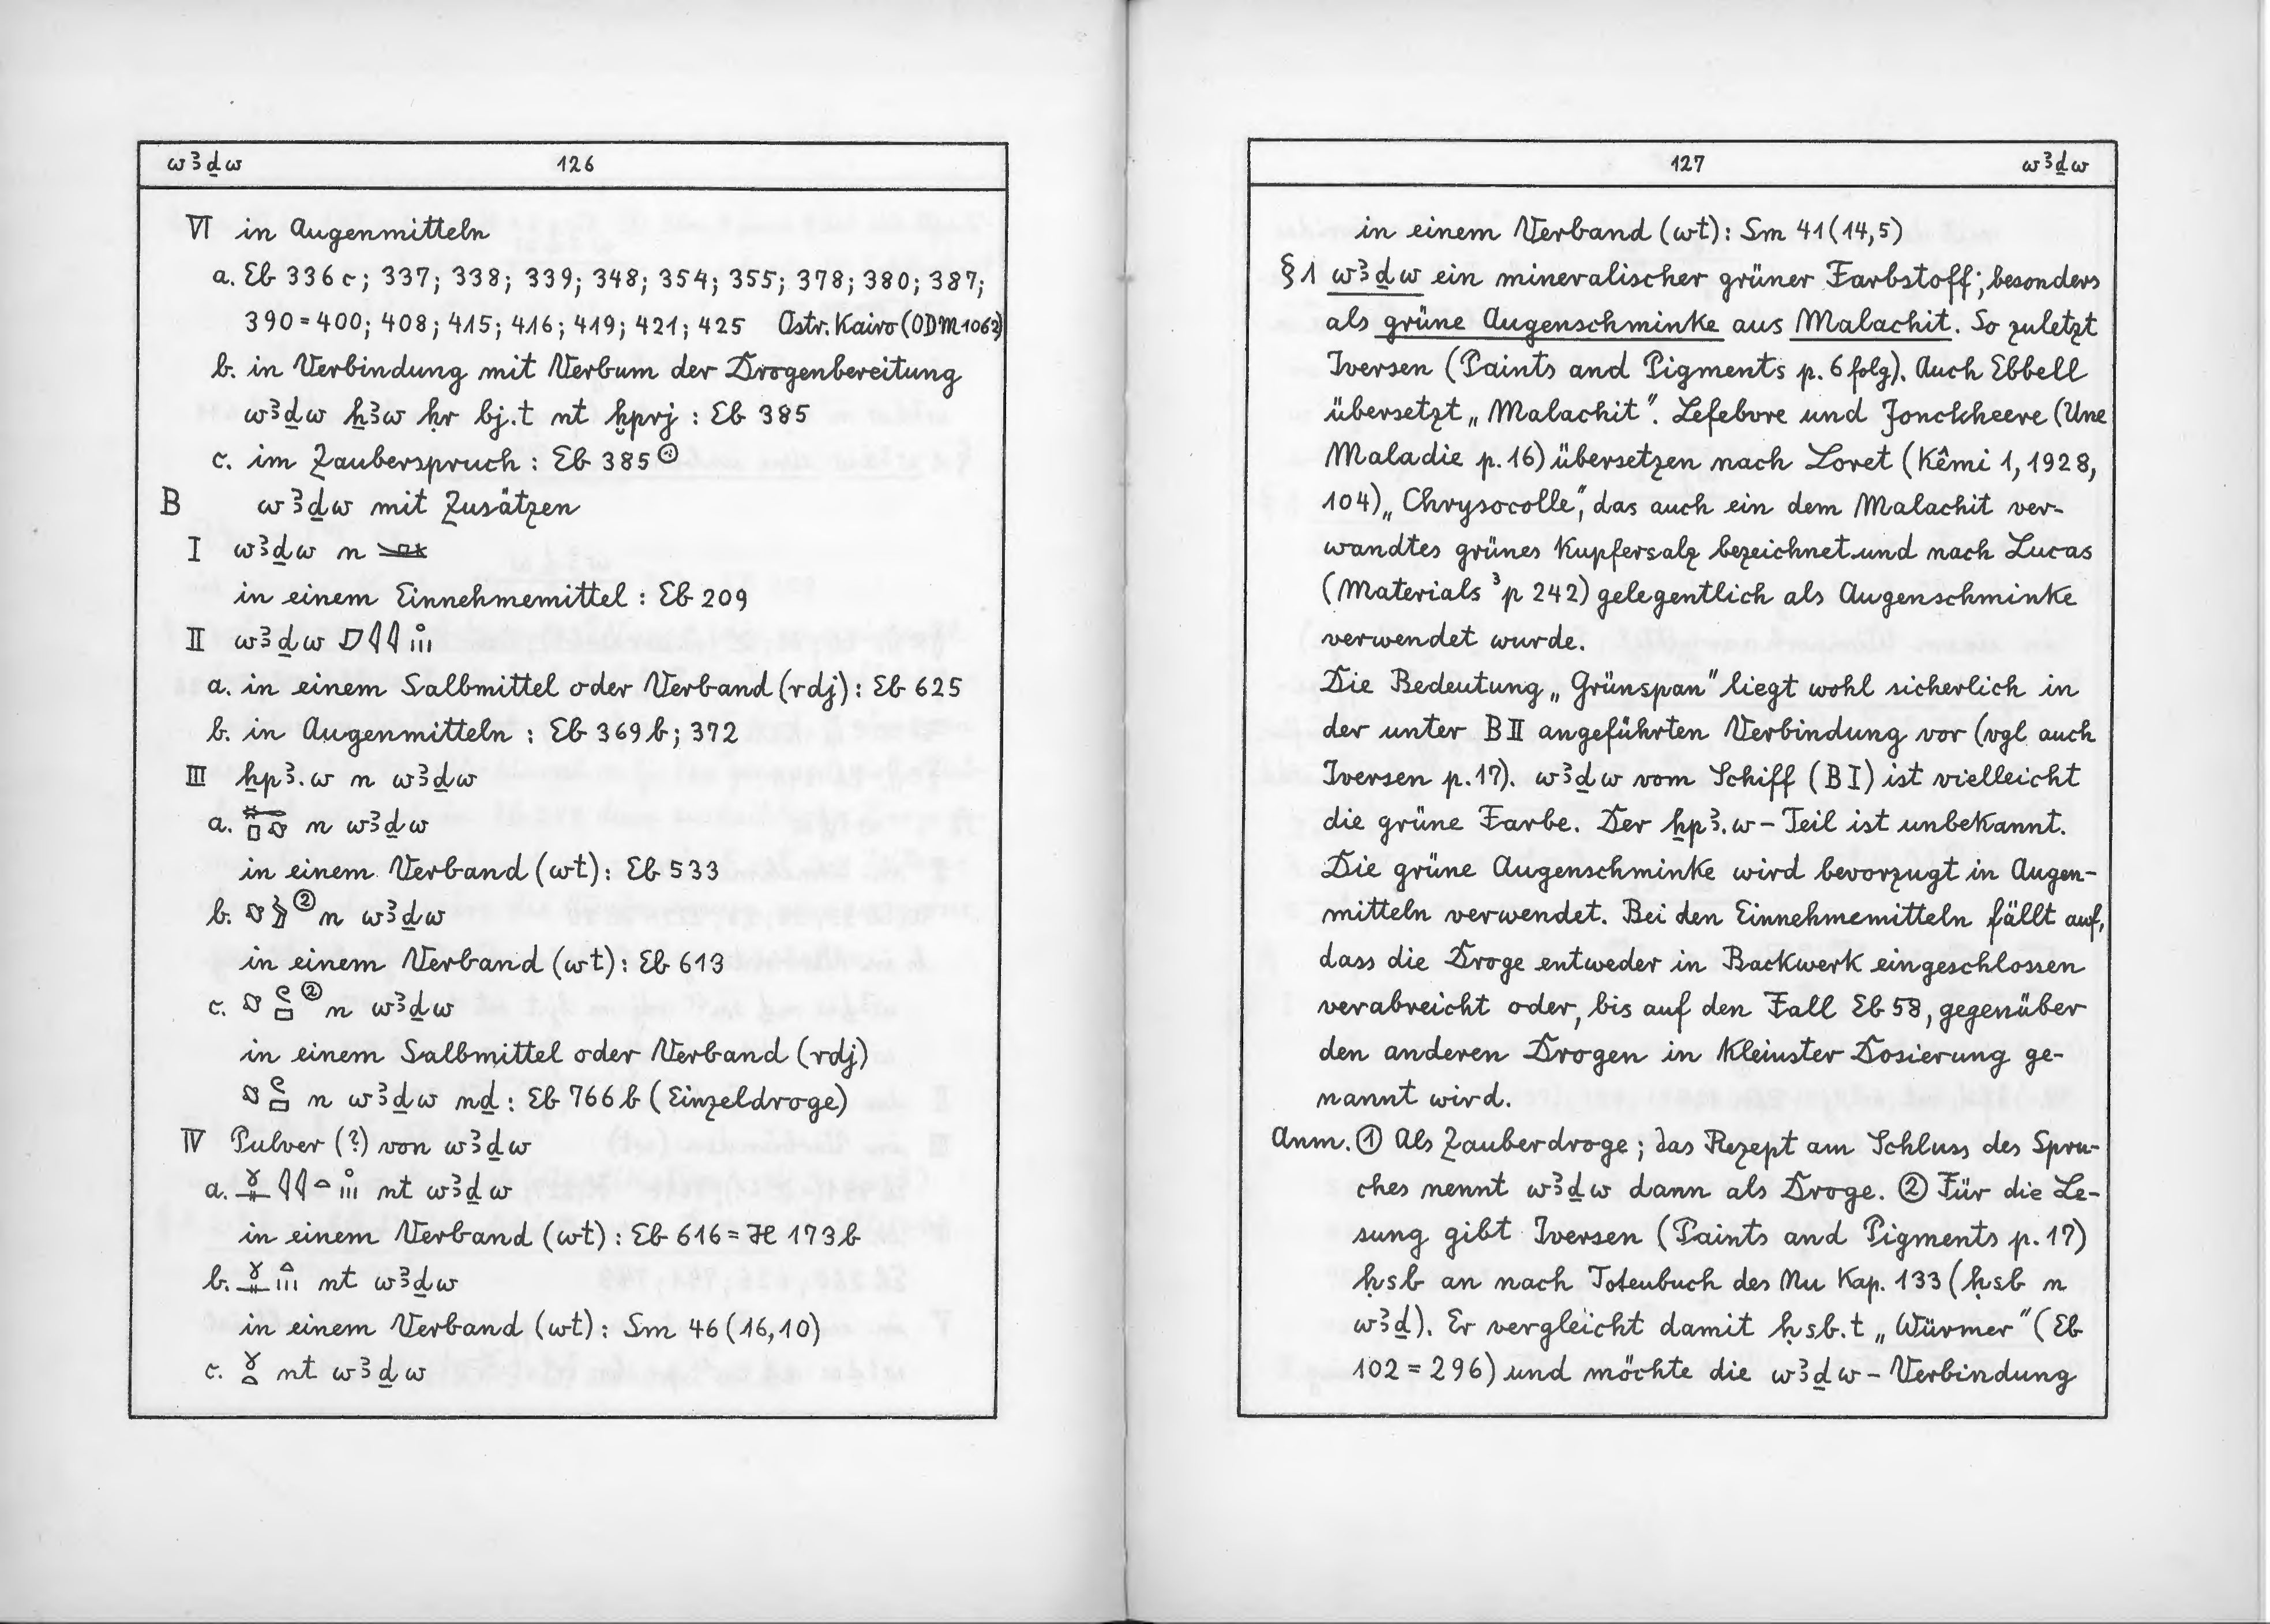 wꜣḏw 126
VI in Augenmitteln
a. Eb 336c; 337; 338; 339; 348; 354; 355; 378; 380; 387;
390=400; 408; 415; 416; 419; 421; 425 Ostr. Kairo (ODM 1062)
b. in Verbindung mit Verbum der Drogenbereitung
wꜣḏw ẖꜣw ḥr bj.t nt ḫprj : Eb 385
c. im Zauberspruch : Eb 385 ①
B wꜣḏw mit Zusätzen
I wꜣḏw n
in einem Einnehmemittel : Eb 209
II wꜣḏw
a. in einem Salbmittel oder Verband (rdj) : Eb 625
b. in Augenmitteln : Eb 369b; 372
III ẖpꜣ.w n wꜣḏw
a. n wꜣḏw
in einem Verband (wt) : Eb 533
b. ② n wꜣḏw
in einem Verband (wt) : Eb 613
c. ② n wꜣḏw
in einem Salbmittel oder Verband (rdj)
n wꜣḏw nḏ : Eb 766b (Einzeldroge)
IV Pulver (?) von wꜣḏw
a. nt wꜣḏw
in einem Verband (wt) : Eb 616 = H 173b
b. nt wꜣḏw
in einem Verband (wt) : Sm 46 (16,10)
c. nt wꜣḏw
127 wꜣḏw
in einem Verband (wt) : Sm 41 (14,5)
§1 wꜣḏw ein mineralischer grüner Farbstoff; besonders
als grüne Augenschminke aus Malachit. So zuletzt
Iversen (Paints and Pigments p. 6 folg). Auch Ebbell
übersetzt „Malachit". Lefebvre und Jonckheere (Une
Maladie p. 16) übersetzen nach Loret (Kêmi 1, 1928,
104) „Chrysocolle", das auch ein dem Malachit ver-
wandtes grünes Kupfersalz bezeichnet und nach Lucas
(Materials ³ p 242) gelegentlich als Augenschminke
verwendet wurde.
Die Bedeutung „Grünspan" liegt wohl sicherlich in
der unter B II angeführten Verbindung vor (vgl auch
Iversen p. 17). wꜣḏw vom Schiff (B I) ist vielleicht
die grüne Farbe. Der ẖpꜣ.w-Teil ist unbekannt.
Die grüne Augenschminke wird bevorzugt in Augen-
mitteln verwendet. Bei den Einnehmemitteln fällt auf,
dass die Droge entweder in Backwerk eingeschlossen
verabreicht oder, bis auf den Fall Eb 58, gegenüber
den anderen Drogen in kleinster Dosierung ge-
nannt wird.
Anm. ① Als Zauberdroge; das Rezept am Schluss des Spru-
ches nennt wꜣḏw dann als Droge. ② Für die Le-
sung gibt Iversen (Paints and Pigments p. 17)
ḥsb an nach Totenbuch des Nu Kap. 133 (ḥsb n
wꜣḏ). Er vergleicht damit ḥsb.t „Würmer" (Eb
102 = 296) und möchte die wꜣḏw-Verbindung